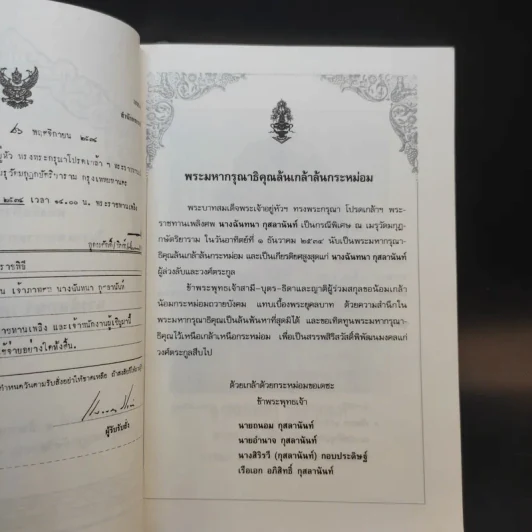 ๒๖ พฤศจิกายน ๒๕๓๔
๒๕๓๔ เวลา ๑๔.๐๐ น. พระราชทานเพลิง
ราชพิธี
เจ้าภาพศพ นางฉันทนา กุสลานันท์
พระราชทานเพลิง และเจ้าพนักงานผู้เชิญมานี้
ใช้จ่ายอย่างใดทั้งสิ้น.
ผู้รับรับสั่ง
พระมหากรุณาธิคุณล้นเกล้าล้นกระหม่อม
พระบาทสมเด็จพระเจ้าอยู่หัวฯ ทรงพระกรุณา โปรดเกล้าฯ พระ-
ราชทานเพลิงศพ นางฉันทนา กุสลานันท์ เป็นกรณีพิเศษ ณ เมรุวัดมกุฏ-
กษัตริยาราม ในวันอาทิตย์ที่ ๑ ธันวาคม ๒๕๓๔ นับเป็นพระมหากรุณา-
ธิคุณล้นเกล้าล้นกระหม่อม และเป็นเกียรติยศสูงสุดแก่ นางฉันทนา กุสลานันท์
ผู้ล่วงลับและวงศ์ตระกูล
ข้าพระพุทธเจ้าสามี-บุตร-ธิดาและญาติผู้ร่วมสกุลขอน้อมเกล้า
น้อมกระหม่อมถวายบังคม แทบเบื้องพระยุคลบาท ด้วยความสำนึกใน
พระมหากรุณาธิคุณเป็นล้นพ้นหาที่สุดมิได้ และขอเทิดทูนพระมหากรุณา-
ธิคุณไว้เหนือเกล้าเหนือกระหม่อม เพื่อเป็นสรรพสิริสวัสดิ์พิพัฒนมงคลแก่
วงศ์ตระกูลสืบไป
ด้วยเกล้าด้วยกระหม่อมขอเดชะ
ข้าพระพุทธเจ้า
นายถนอม กุสลานันท์
นายอำนาจ กุสลานันท์
นางสิริรวี (กุสลานันท์) กอบประดิษฐ์
เรือเอก อภิสิทธิ์ กุสลานันท์